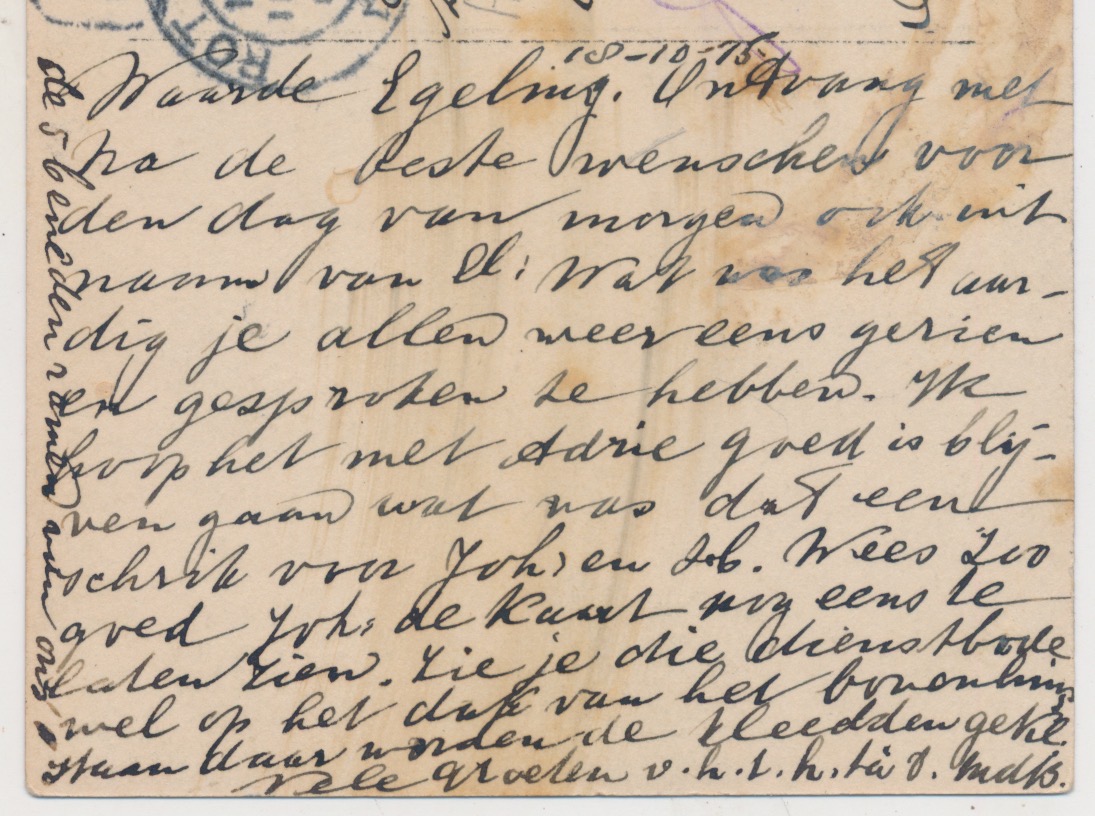 ROT
18-10-15
Waarde Egeling. Ontvang met
Na de beste wenschen voor
den dag van morgen ook uit
naam van El: Wat was het aar-
dig je allen weer eens gezien
en gesproken te hebben. Ik
hoop het met Adrie goed is blij-
ven gaan wat was dat een
schrik voor Joh: en Wees zoo
goed Joh: de kaart nog eens te
laten zien. Zie je die dienstbode
wel op het dak van het bovenhuis
staan daar worden de kleedden gekl.
Vele groeten v.h.t.h.
de 5 beneden ramen van ons